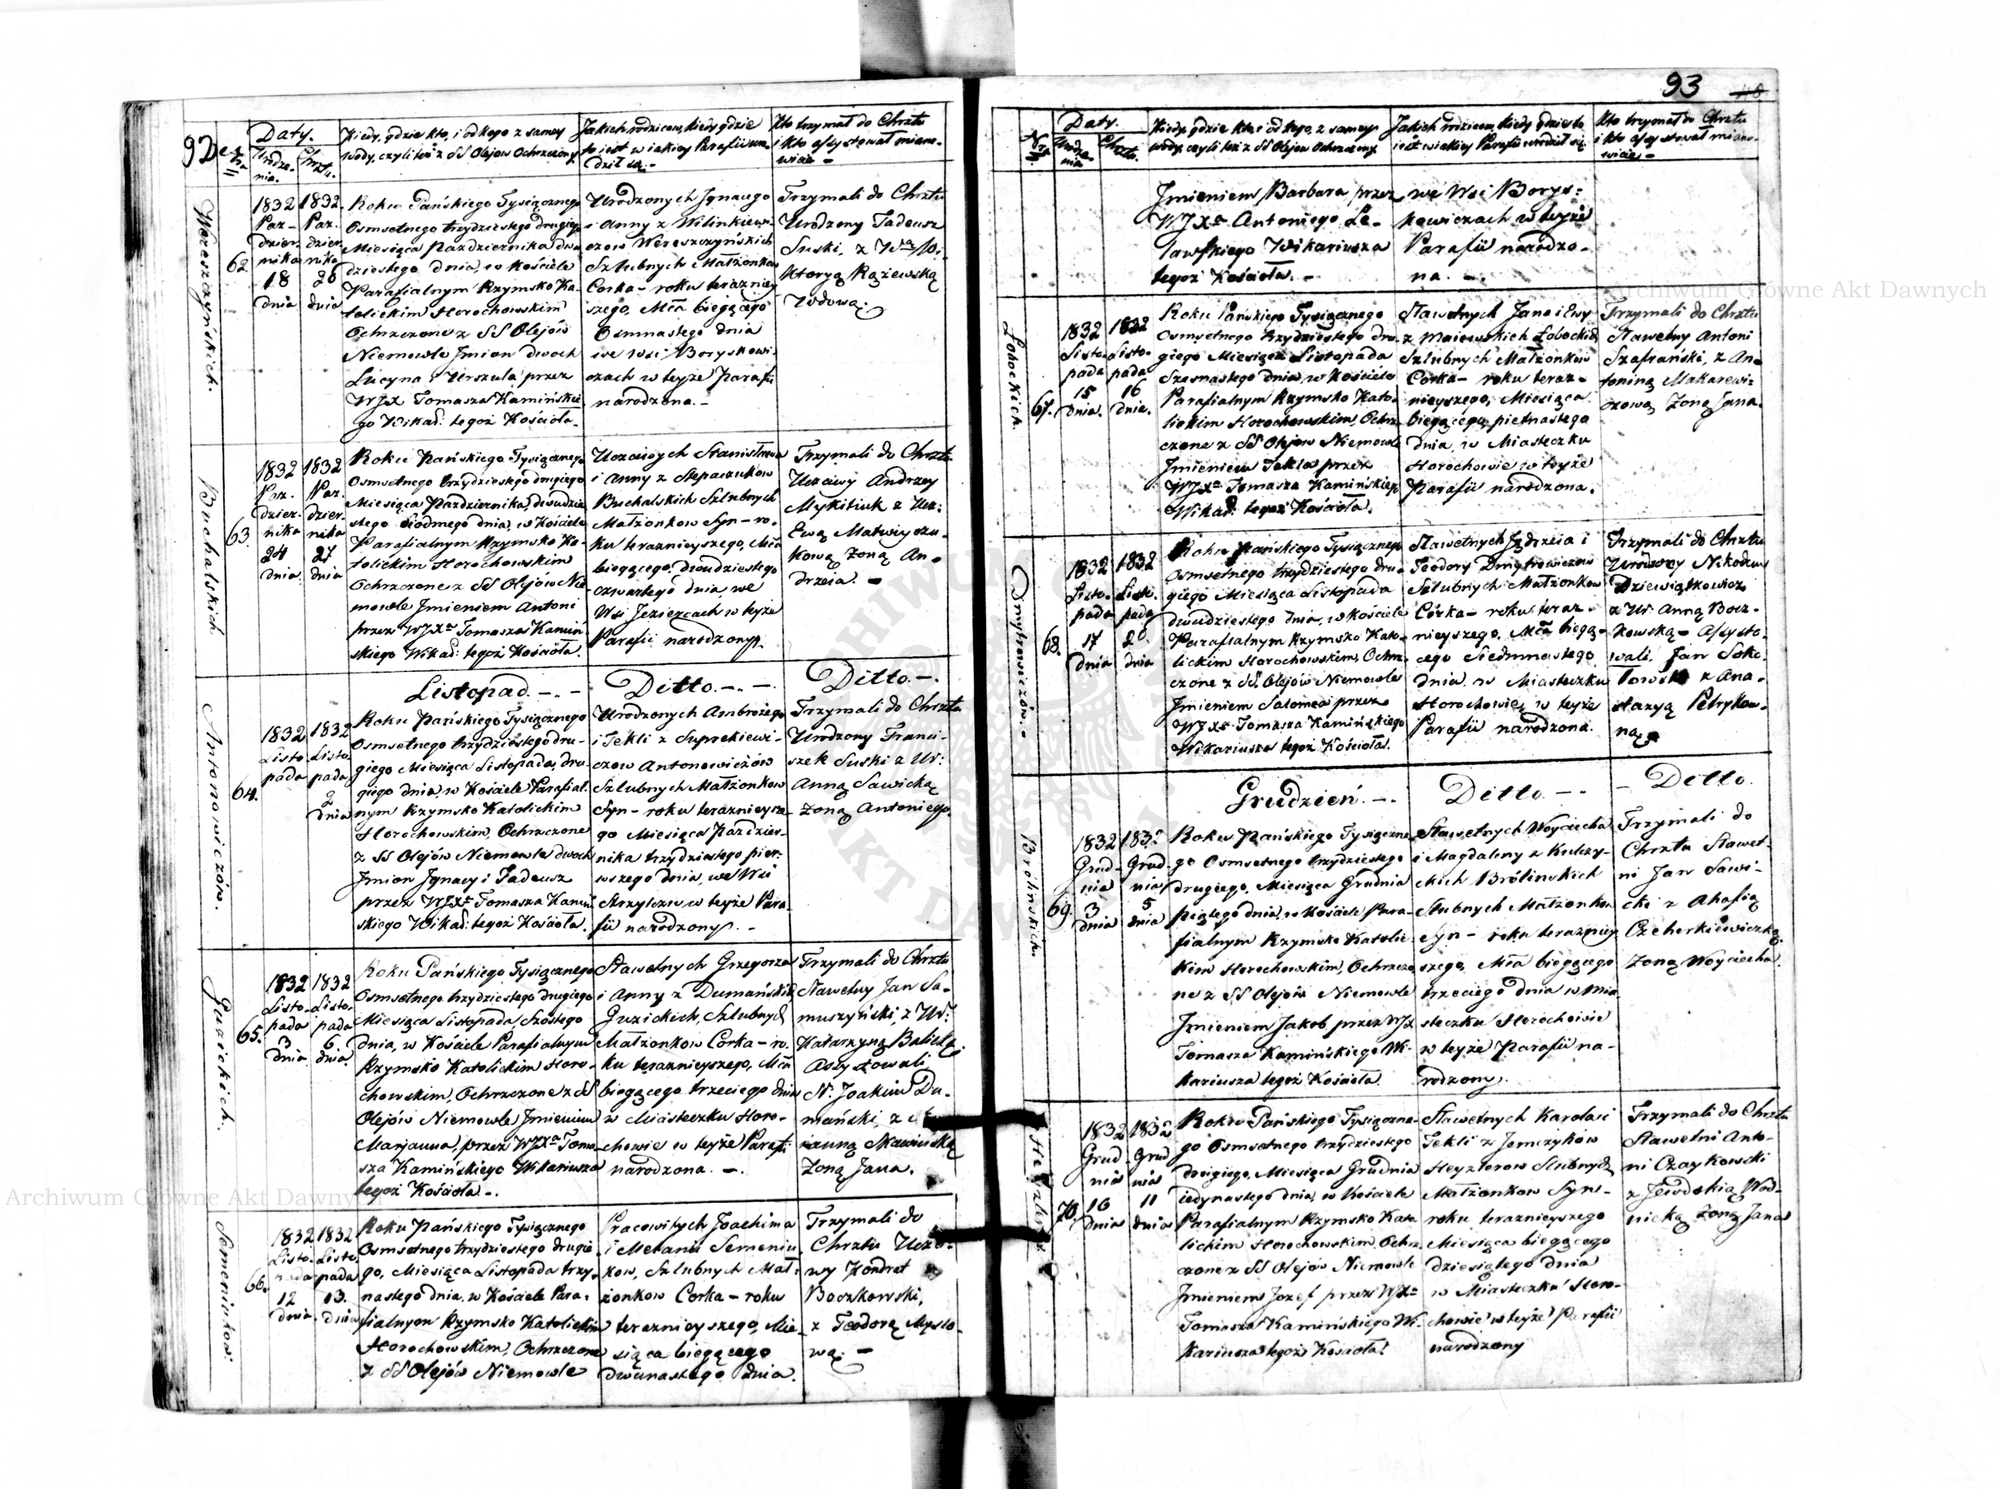 92
Daty.
Nr
Urodze-
nia.
Chrztu.
Kiedy, gdzie kto, i od kogo z samey
wody, czyli też z SS Olejow Ochrzczony
Jakich rodzicow, kiedy gdzie
to iest w iakiey Parafii uro-
dził się.
Kto trzymał do Chrztu
i kto assystował miano-
wicie —
Wereszczyńskich.
62
1832
Paz-
dzier-
nika
18
dnia
1832
Paz.
dzier.
nika
20
dnia
Roku Pańskiego Tysiącznego
Osmsetnego trzydziestego drugiego
Miesiąca Pazdziernika dwu
dziestego dnia, w Kościele
Parafialnym Rzymsko Ka-
tolickim Horochowskim
Ochrzczone z SS Olejów
Niemowle Jmion dwoch
Lucyna i Urszula przez
WJX Tomasza Kamińskie-
go Wikad: tegoż Kościoła.
Urodzonych Jgnacego
i Anny z Wilinkiewi-
czow Wereszczyńskich
Szlubnych Małżonkow
Corka — roku teraźniey
szego, Mca biegącego
Osmnastego dnia
we Wsi Boryskowi-
czach w teyże Parafii
narodzona. —
Trzymali do Chrztu
Urodzony Tadeusz
Suski, z
Wdową.
Buchalskich
63.
1832
Paz.
dzier-
nika
24
dnia
1832
Paz.
dzier.
nika
27
dnia
Roku Pańskiego Tysiącznego
Osmsetnego trzydziestego drugiego
Miesiąca Pazdziernika, dwudzie
stego siodmego dnia, w Kościele
Parafialnym Rzymsko Ka-
tolickim Horochowskim
Ochrzczone z SS Olejów Nie
mowle Jmieniem Antoni
przez WJXa Tomasza Kamiń
skiego Wikad: tegoż Kościoła.
Uczciwych Stanisława
i Anny z Stepaczukow
Buchalskich Szlubnych
Małżonkow Syn — ro-
ku teraznieyszego, Mca
biegącego, dwudziestego
czwartego dnia, we
Wsi Jezierzach w teyże
Parafii narodzony.
Trzymali do Chrztu
Uczciwy Andrzey
Mykitiuk z Ucz:
Ewą Matwieyczu-
kową Żoną An-
drzeia. —
Listopad. — . —
Ditto. — . —
Ditto. — .
Antonowiczów.
64.
1832
Listo
pada
1832
Listo.
pada
2
dnia
Roku Pańskiego Tysiącznego
Osmsetnego trzydziestego dru-
giego Miesiąca Listopada, dru
giego dnia, w Kościele Parafial
nym Rzymsko Katolickim
Horochowskim, Ochrzczone
z SS Olejów Niemowle dwoch
Jmion Jgnacy i Tadeusz
przez WJXa Tomasza Kamiń
skiego Wikad: tegoż Kościoła.
Urodzonych Ambrożego
i Tekli z Suprekiewi-
czow Antonowiczów
Szlubnych Małżonkow
Syn — roku teraznieysze
go Miesiąca Pazdzier-
nika trzydziestego pier-
wszego dnia, we Wsi
Strzylcze w teyże Para
fii narodzony. —
Trzymali do Chrztu
Urodzony Franci-
szek Suski z Ur:
Anną Sawicką
Żoną Antoniego.
Guzickich.
65.
1832
Listo.
pada
3
dnia
1832
Listo.
pada
6.
dnia
Roku Pańskiego Tysiącznego
Osmsetnego trzydziestego drugiego
Miesiąca Listopada, Szostego
dnia, w Kościele Parafialnym
Rzymsko Katolickim Horo-
chowskim, Ochrzczone z SS
Olejów Niemowle Jmieniem
Marjanna, przez WJXa Toma-
sza Kamińskiego Wikariusza
tegoż Kościoła. —
Sławetnych Grzegorza
i Anny z Dumańskich
Guzickich, Szlubnych
Małżonkow Corka — ro-
ku teraznieyszego, Mca
biegącego trzeciego dnia
w Miasteczku Horo-
chowie w teyże Parafi
narodzona. —.
Trzymali do Chrztu
Sławetny Jan Sa-
muszyński, z Ur:
Katarzyną
Assystowali
Sł. Joakim Du-
mański, z
Żoną Jana.
Semeniukow:
66.
1832
Listo.
pada
12
dnia
1832
Listo
pada
13.
dnia
Roku Pańskiego Tysiącznego
Osmsetnego trzydziestego drugie
go, Miesiąca Listopada trzy-
nastego dnia, w Kościele Para-
fialnym Rzymsko Katolickim
Horochowskim, Ochrzczone
z SS Olejów Niemowle
Pracowitych Joachima
i Melanii Semeniu
kow, Szlubnych Mał-
żonkow Corka — roku
teraznieyszego, Mie-
siąca biegącego
dwunastego dnia.
Trzymali do
Chrztu Uczci-
wy Kondrat
Boczkowski,
z Teodorą Mysło-
wą. —
93
Daty.
Nr
Urodze-
nia
Chrztu.
Kiedy, gdzie kto i od kogo, z samey
wody, czyli też z SS Olejow Ochrzczony.
Jakich rodzicow, kiedy gdzie to
iest w iakiey Parafii urodził się.
Kto trzymał do Chrztu
i kto assystował miano-
wicie, —
Jmieniem Barbara, przez
WJXa Antoniego Le-
Wikariusza
tegoż Kościoła. —
we Wsi Borys-
kowiczach w teyże
Parafii narodzo-
na. —.
Łobockich
67.
1832
Listo-
pada
15
dnia.
1832
Listo-
pada
16
dnia.
Roku Pańskiego Tysiącznego
Osmsetnego trzydziestego dru-
giego Miesiąca Listopada
Szesnastego dnia, w Kościele
Parafialnym Rzymsko Kato-
lickim Horochowskim, Ochrz-
czone z SS Olejow Niemowle
Jmieniem Tekla przez
WJXa Tomasza Kamińskiego
Wikad: tegoż Kościoła.
Sławetnych Jana i Ewy
z Maiewskich Łobockich
Szlubnych Małżonków
Corka — roku teraz-
nieyszego, Miesiąca
biegącego, piętnastego
dnia, w Miasteczku
Horochowie w teyże
Parafii narodzona.
Trzymali do Chrztu
Sławetny Antoni
Szafrański, z An-
toniną Makarewi-
czową Żoną Jana.
Dmytrowiczów. —
68.
1832
Listo.
pada
17
dnia
1832
Listo.
pada
20
dnia
Roku Pańskiego Tysiącznego
Osmsetnego trzydziestego dru-
giego Miesiąca Listopada
dwudziestego dnia, w Kościele
Parafialnym Rzymsko Kato-
lickim Horochowskim, Ochrz
czone z SS. Olejów Niemowle
Jmieniem Salomea przez
WJXa Tomasza Kamińskiego
Wikariusza tegoż Kościoła.
Sławetnych Jędrzeia i
Teodory Dmytrowiczow
Szlubnych Małżonkow
Córka — roku teraz-
nieyszego, Mca biegą-
cego Siedmnastego
dnia w Miasteczku
Horochowie, w teyże
Parafii narodzona.
Trzymali do Chrztu
Urodzony Nikodem
Dziewiątkowicz
z Ur. Anną Bocz-
kowską — Assysto-
wali Jan Soko-
łowski z Ana-
stazyą Petrykow-
ną.
Grudzień. — .
Ditto. — .
— Ditto.
Brólinskich
69.
1832
Grud-
nia
3
dnia
1832
Grud.
nia
5
dnia
Roku Pańskiego Tysiączne
go Osmsetnego trzydziestego
drugiego, Miesiąca Grudnia
piątego dnia, w Kościele Para-
fialnym Rzymsko Katolic-
kim Horochowskim, Ochrzczo
ne z SS Olejów Niemowle
Jmieniem Jakob przez WJX
Tomasza Kamińskiego Wi-
kariusza tegoż Kościoła.
Sławetnych Woyciecha
i Magdaleny z Kulczy-
ckich Brólinskich
Slubnych Małżonkow
Syn — roku teraźniey
szego, Mca biegącego
trzeciego dnia w Mia
steczku Horochowie
w teyże Parafii na-
rodzony.
Trzymali do
Chrztu Sławet-
ni Jan Sawi-
cki z Ahafią
Czeherkiewiczką
Żoną Woyciecha.
70.
1832
Grud-
nia
10
dnia
1832
Grud
nia
11
dnia
Roku Pańskiego Tysiączne-
go Osmsetnego trzydziestego
drugiego, Miesiąca Grudnia
iedynastego dnia, w Kościele
Parafialnym Rzymsko Kato
lickim Horochowskim, Ochrz-
czone z SS Olejów Niemowle
Jmieniem Jozef przez WJXa
Tomasza Kamińskiego Wi-
kariusza tegoż Kościoła.
Sławetnych Karola i
Tekli z Jomczyków
Heyzlerow Slubnych
Małżonkow Syn —
roku teraznieyszego
Miesiąca biegącego
dziesiątego dnia
w Miasteczku Horo-
chowie w teyże Parafii
narodzony
Trzymali do Chrztu
Sławetni Anto-
ni Czaykowski
z Jewdokią Wod-
nicką Żoną Jana
Archiwum Główne Akt Dawnych
Archiwum Główne Akt Dawnych